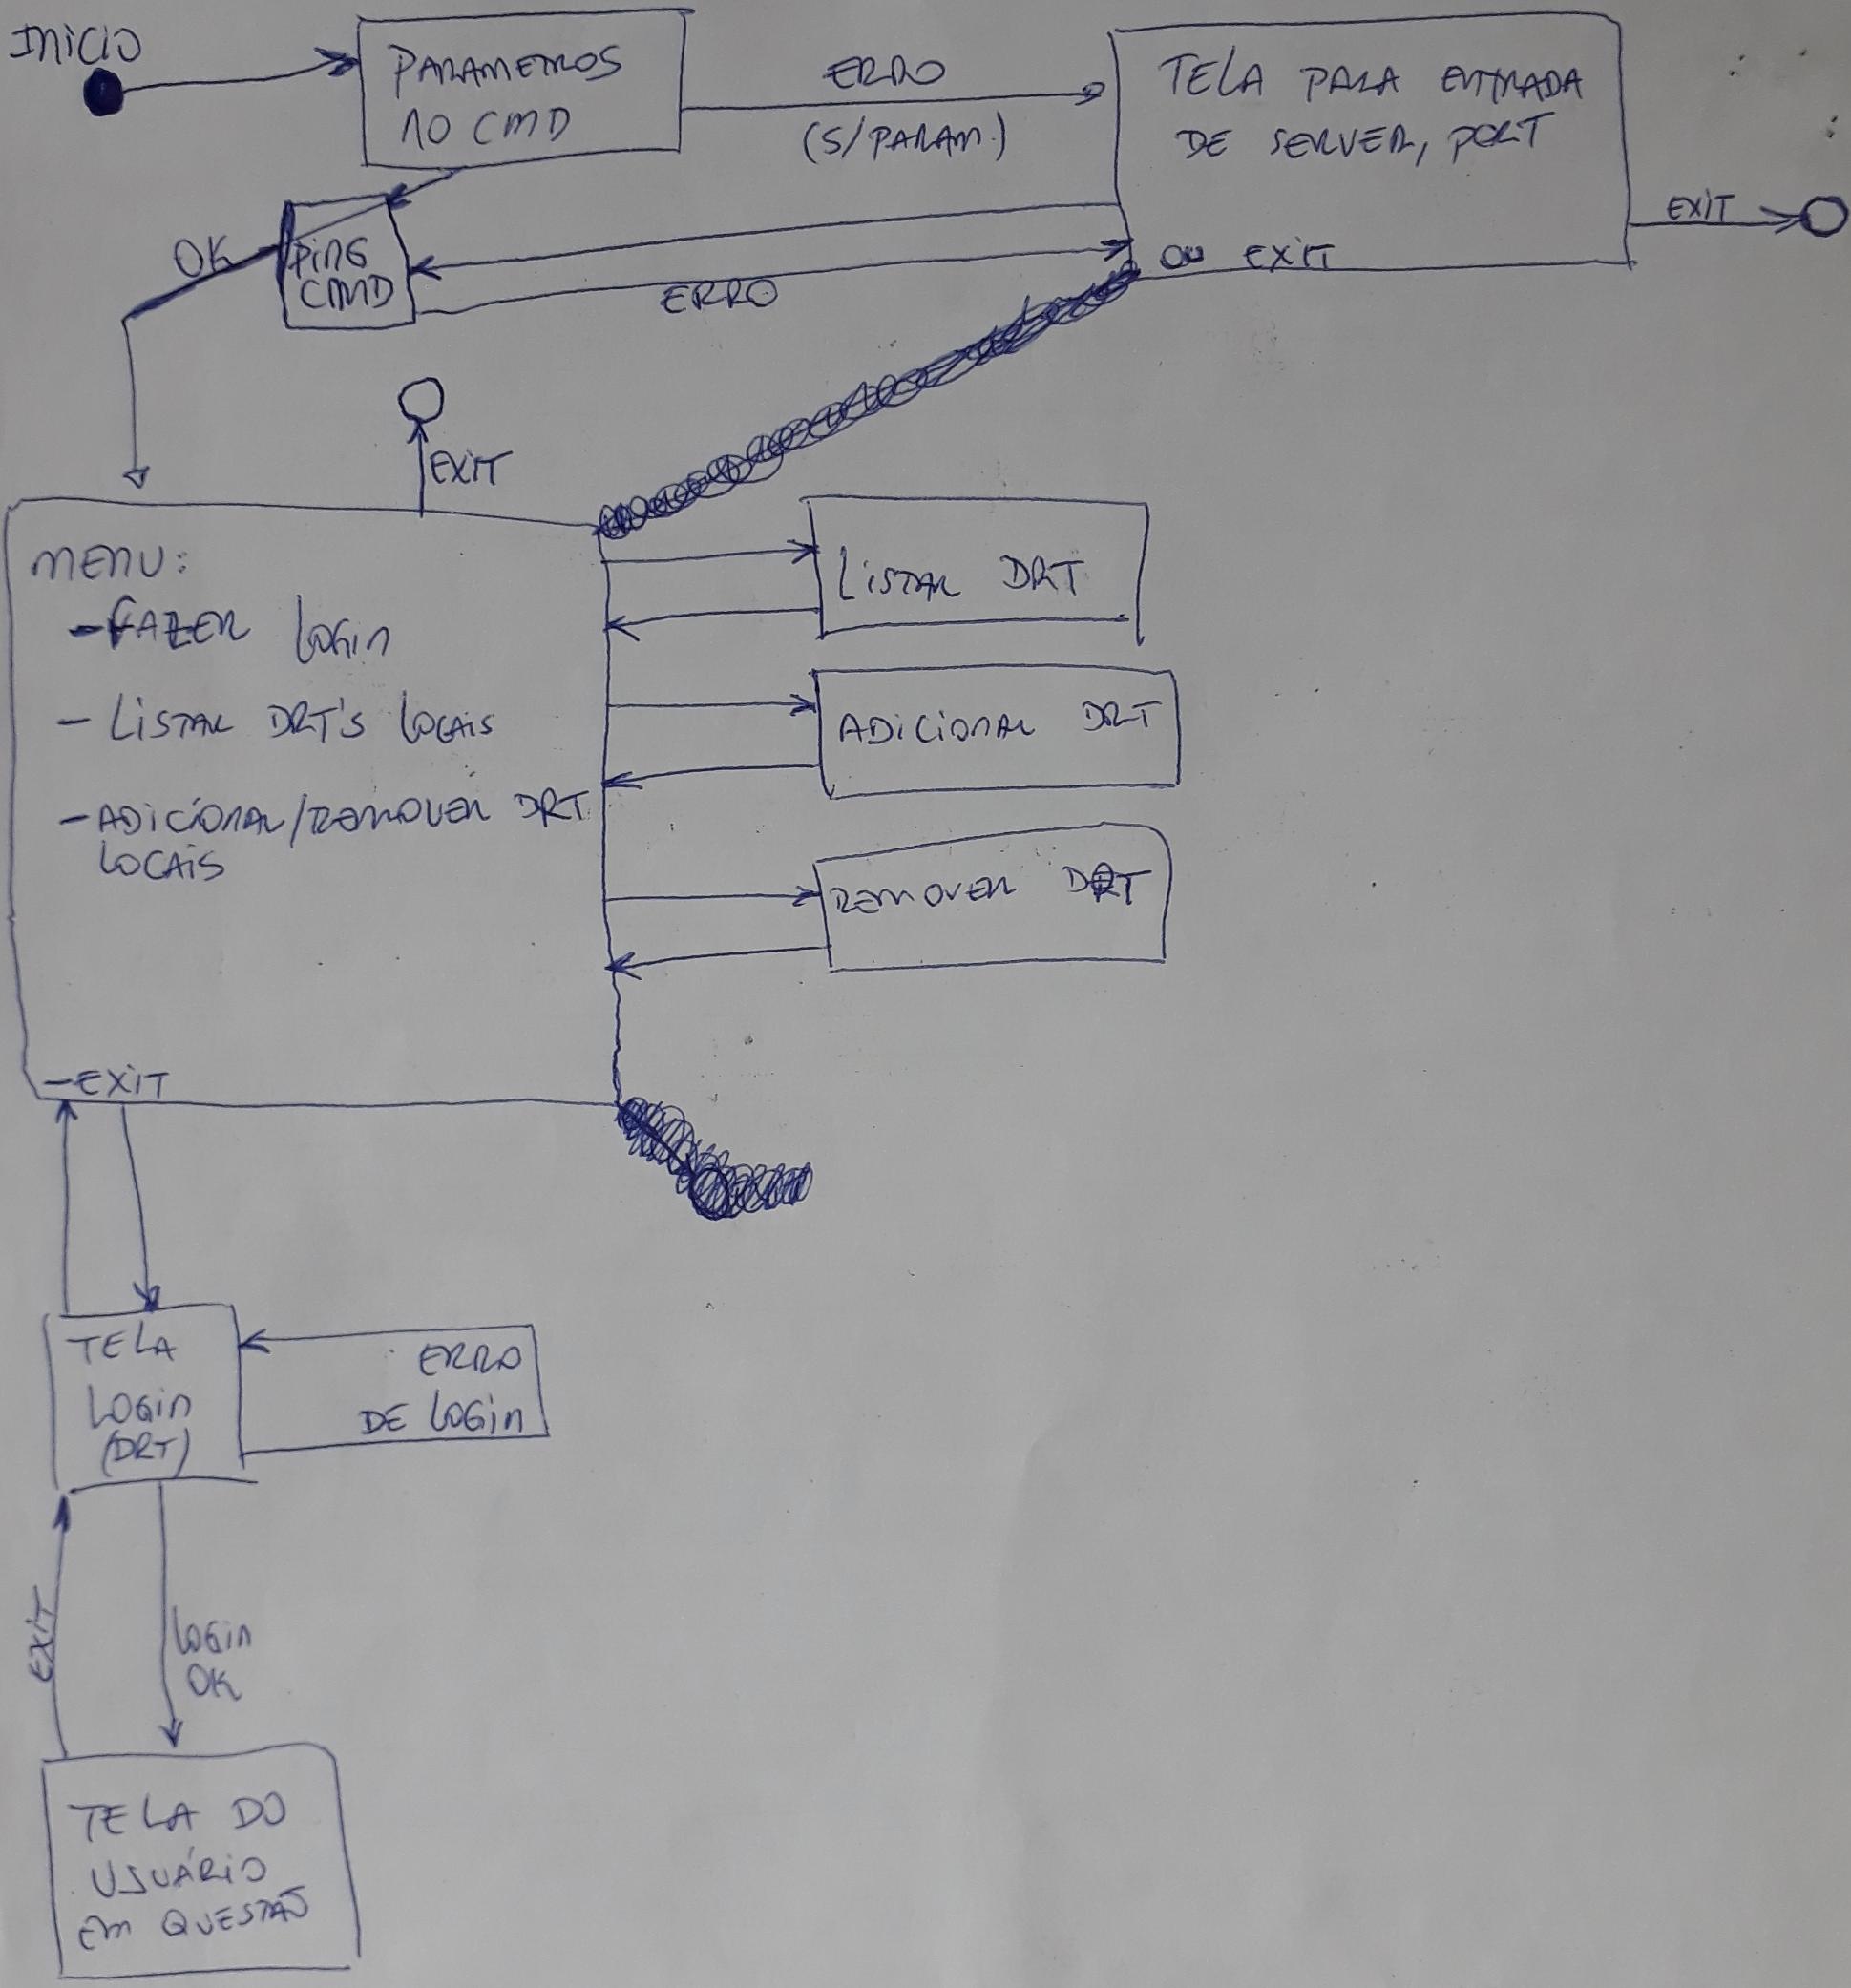 INICIO
PARAMETROS
NO CMD
ERRO
(S/PARAM.)
TELA PARA ENTRADA
DE SERVER, PORT
OU EXIT
EXIT
OK
PING
CMD
ERRO
EXIT
MENU:
- FAZER LOGIN
- LISTAR DRT'S LOCAIS
- ADICIONAR/REMOVER DRT
LOCAIS
- EXIT
LISTAR DRT
ADICIONAR DRT
REMOVER DRT
TELA
LOGIN
(DRT)
ERRO
DE LOGIN
EXIT
LOGIN
OK
TELA DO
USUÁRIO
EM QUESTÃO